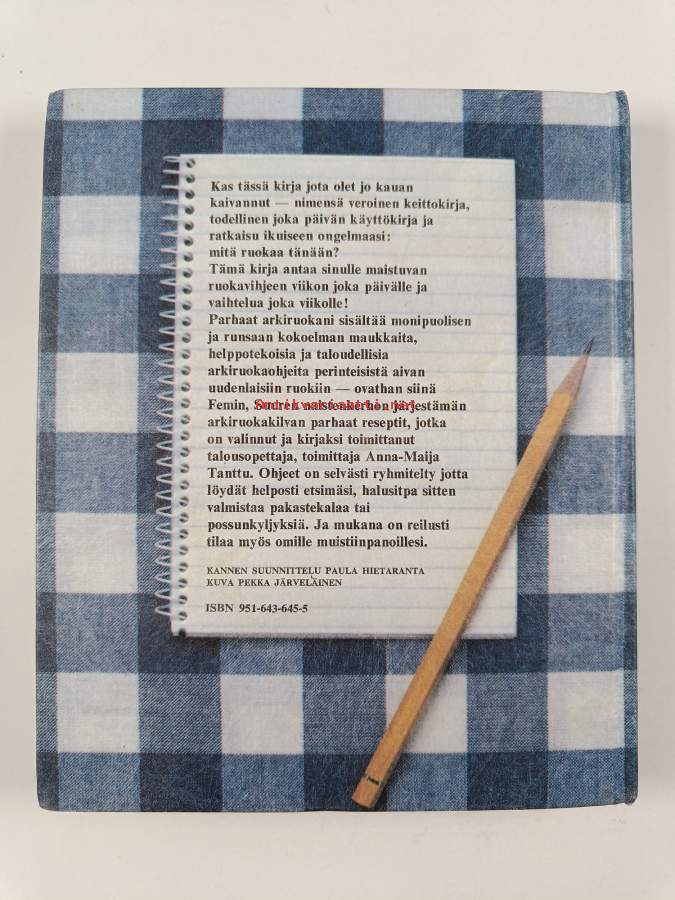 Kas tässä kirja jota olet jo kauan
kaivannut — nimensä veroinen keittokirja,
todellinen joka päivän käyttökirja ja
ratkaisu ikuiseen ongelmaasi:
mitä ruokaa tänään?
Tämä kirja antaa sinulle maistuvan
ruokavihjeen viikon joka päivälle ja
vaihtelua joka viikolle!
Parhaat arkiruokani sisältää monipuolisen
ja runsaan kokoelman maukkaita,
helppotekoisia ja taloudellisia
arkiruokaohjeita perinteisistä aivan
uudenlaisiin ruokiin — ovathan siinä
Femin, Suuren naistenkerhon järjestämän
arkiruokakilvan parhaat reseptit, jotka
on valinnut ja kirjaksi toimittanut
talousopettaja, toimittaja Anna-Maija
Tanttu. Ohjeet on selvästi ryhmitelty jotta
löydät helposti etsimäsi, halusitpa sitten
valmistaa pakastekalaa tai
possunkyljyksiä. Ja mukana on reilusti
tilaa myös omille muistiinpanoillesi.
KANNEN SUUNNITTELU PAULA HIETARANTA
KUVA PEKKA JÄRVELÄINEN
ISBN 951-643-645-5